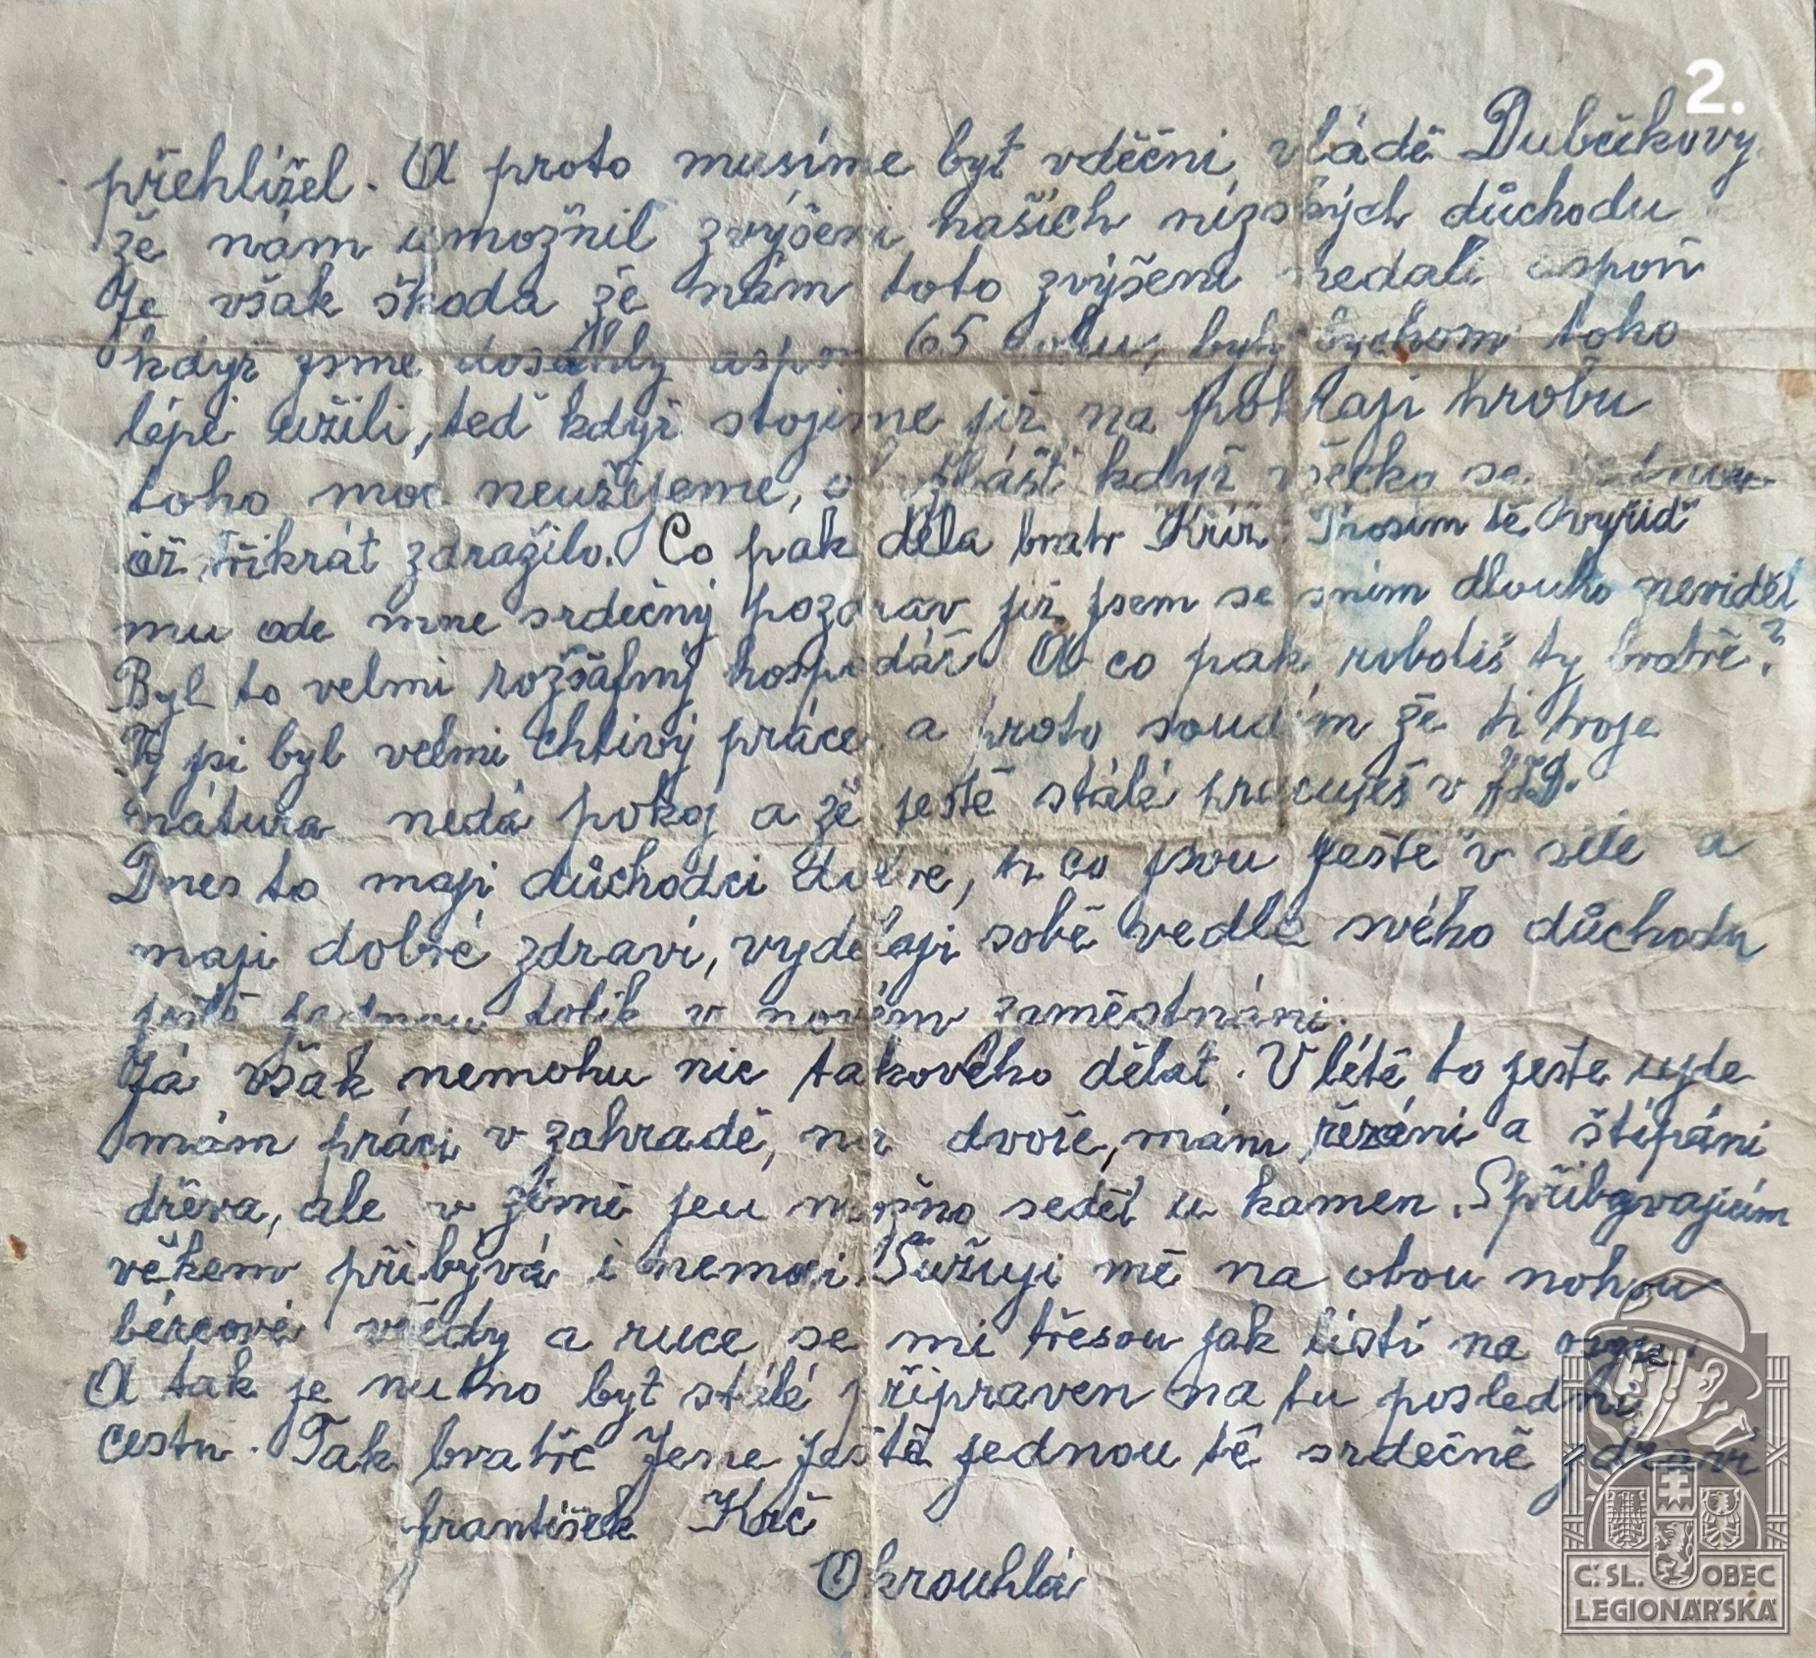 2.
přehlížel. A proto musíme byť vděčni vládě Dubčekovy
že nám umožnil zvýšeni našich nízských důchodu
Je však škoda že nám toto zvýšeni nedali aspoň
když jsme dosáhly aspon 65 roku, byly bychom toho
lépe užili, ted když stojime již na pokraji hrobu
toho moc neužijeme, obzvlášť když všecko se
až třikrát zdražilo. Co pak děla bratr Kříž. Prosim tě vyřiď
mu ode mne srdečný pozdrav již jsem se snim dlouho neviděl
Byl to velmi rozšafný hospodář. A co pak robotiš ty bratře?
Ty jsi byl velmi chtivý práce, a proto soudím že ti tvoje
nátura nedá pokoj a že ještě stálé pracuješ v JZD.
Dnes to maji důchodci dobré, ti co jsou ještě v sile a
maji dobré zdraví, vydělaji sobě vedle svého důchodu
ještě jednou tolik v novém zaměstnáni.
Já však nemohu nic takového dělat. V létě to ještě ujde
mám práci v zahradě, na dvoře, mám řezáni a štípáni
dřeva, ale v zimě jen možno sedět u kamen. Spřibývajícim
věkem přibývá i nemoci. Sužuji mě na obou nohou
bércové vředy a ruce se mi třesou jak listí na
A tak je nutno byť stálé připraven na tu posledni
cestu. Tak bratře Jene ještě jednou tě srdečně zdraví
františek Kač
Okrouhlá
Č. SL. OBEC
LEGIONÁŘSKÁ